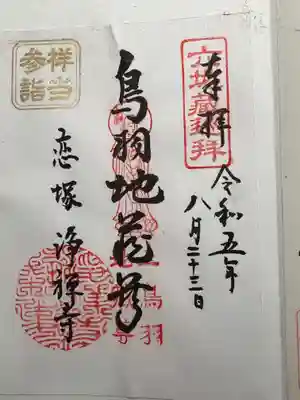 奉拝
令和五年
八月二十三日
六地蔵巡拝
鳥羽地蔵尊
鳥羽
恋塚 浄禅寺
祥当
参詣